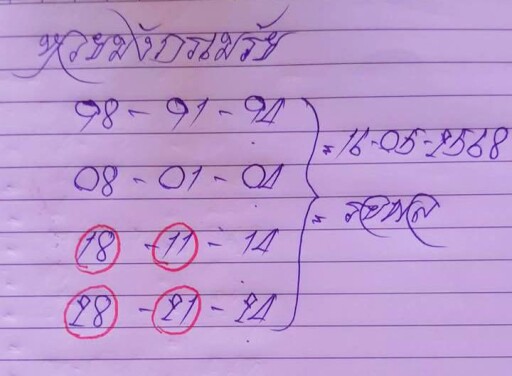 หวยมังกรเมรัย
98 - 91 - 94
08 - 01 - 04
= 16-05-2568
18 - 11 - 14
= รอผล
28 - 21 - 24